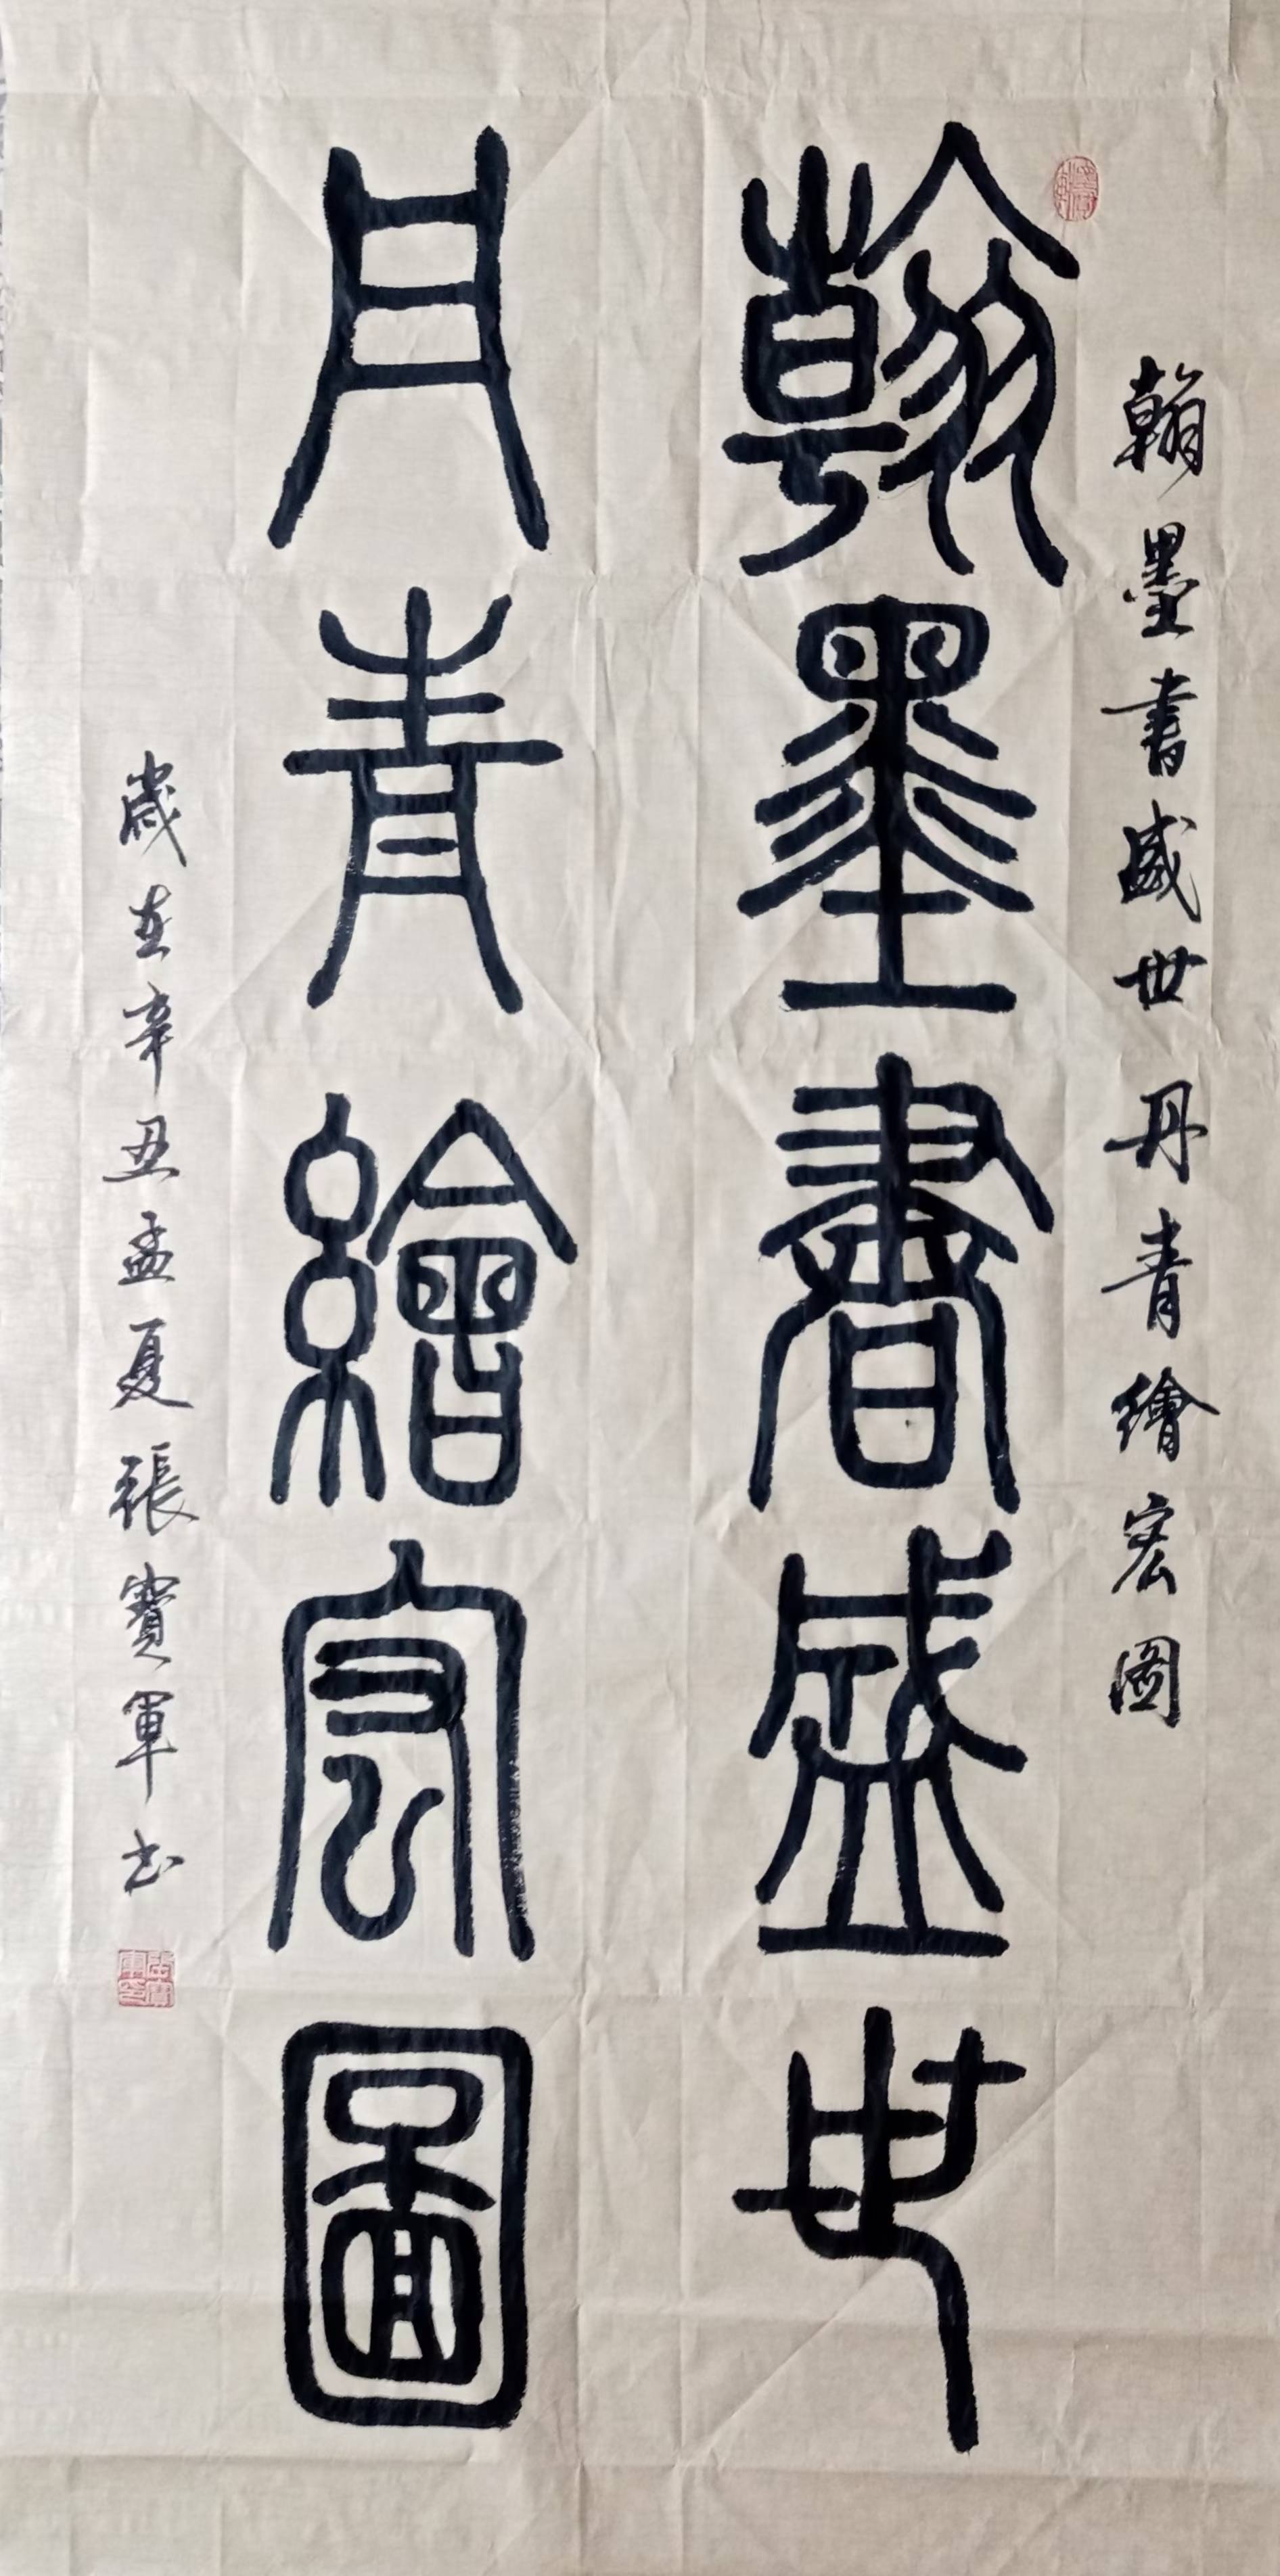 翰墨書盛世丹青繪宏图
翰墨書盛世
丹青繪宏圖
歲在辛丑孟夏張寶軍书